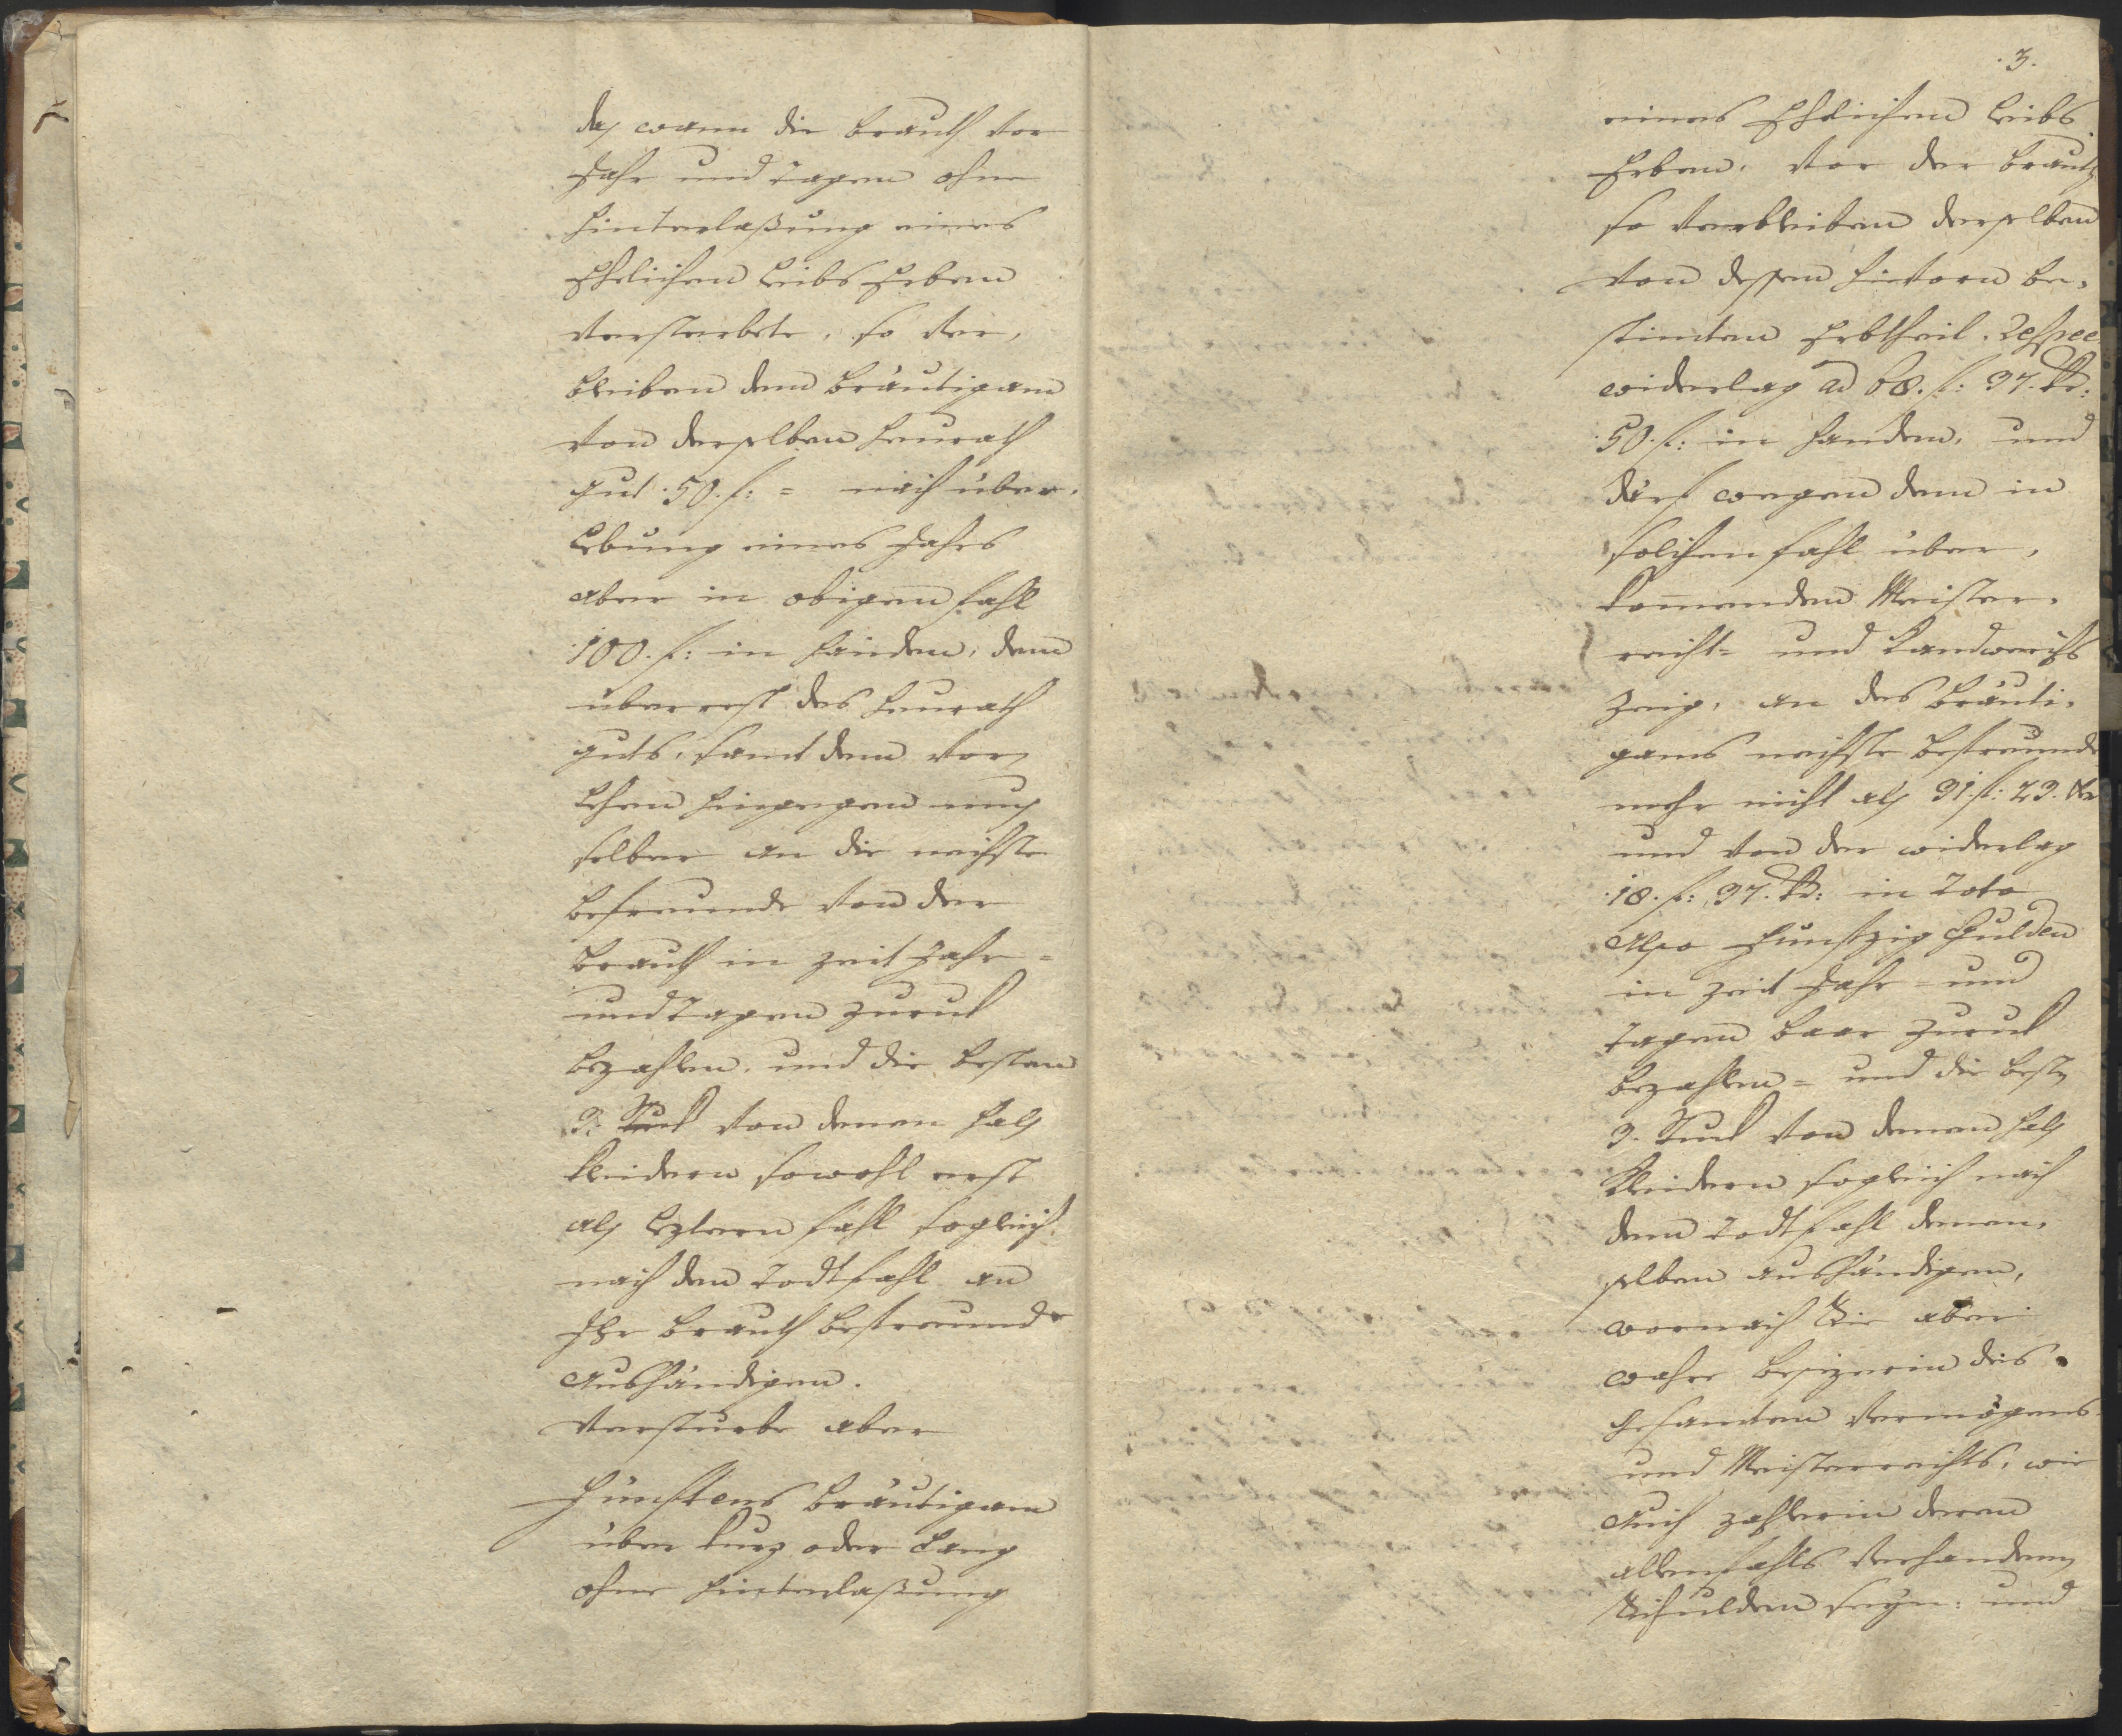 daß wann die Brauth vor
Jahr und Tagen ohne
Hinterlaßung eines
Ehelichen Leibs Erben
versterbete, so ver,
bleiben dem Bräutigam
von derselben Heurath
gut 50. f: = nach über,
lebung eines Jahrs
aber in obigem fahl
100. f: in Handen, dem
überrest des Heurath
guts, samt dem vor
lehen hingegen muß
selber an die nächste
befreunde von der
Brauth in zeit Jahr =
und Tagen zuruk
bezahlen, und die besten
3: Stuck von denen Hals
kleidern sowohl erst
als leztern fahl sogleich
nach dem Todtfahl an
Ihr Brauth befreunde
aushändigen.
Versturbe aber
Fünftens Bräutigam
über kurz oder lang
ohne Hinterlaßung
.3.
eines Ehelichen Leibs
Erben, vor der Brauth
so verbleiben derselben
von dessen hievorn be,
stimten Erbtheil, Respec
widerlag ad 68. f: 37. kr:
50. f: in Handen, und
därf wegen dem in
solchen fahl über,
komenden Meister,
recht= und Handwerchs
zeug, an des Bräuti,
gams nechste befreunde
mehr nicht als 31. f: 23. kr
und von der widerlag
18. f: 37. kr: in Toto
Also Funfzig Gulden
in zeit Jahr = und
Tagen baar zuruk
bezahlen = und die beste
3. Stuck von denen Hals
kleidern sogleich nach
dem Todtfahl denen,
selben aushändigen,
wornach Sie aber
wahre besizerin des
gesamten Vermögens
und Meisterrechts, wie
auch zahlerin deren
allenfahls verhandenen
Schulden seyn: und